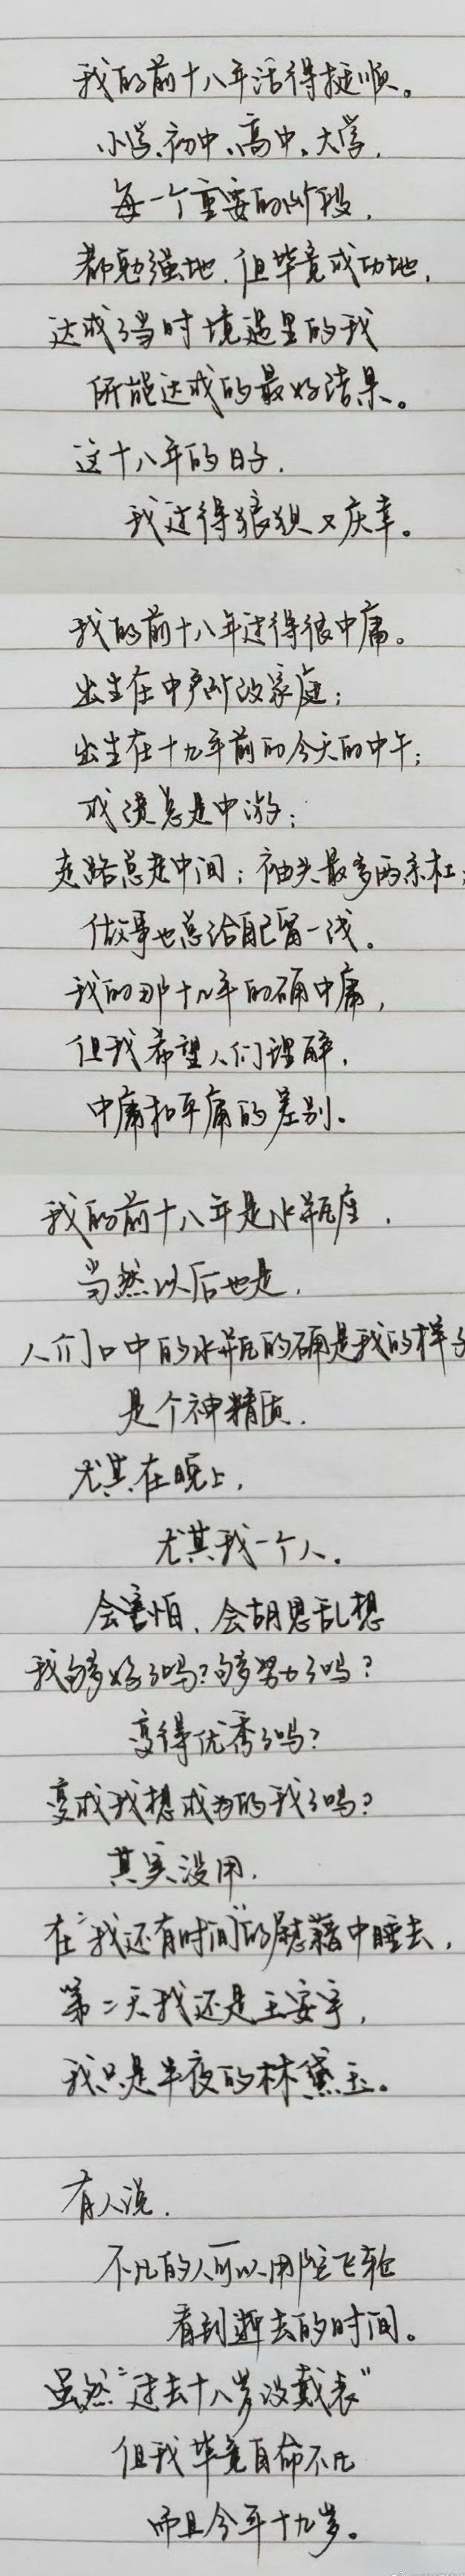 我的前十八年活得挺顺。
小学、初中、高中、大学，
每一个重要的阶段，
都勉强地，但毕竟成功地，
达成了当时境遇里的我
所能达成的最好结果。
这十八年的日子，
我过得狼狈又庆幸。
我的前十八年过得很中庸。
出生在中产阶级家庭；
出生在十九年前的今天的中午；
成绩总是中游；
走路总走中间；袖头最多两条杠；
做事也总给自己留一线。
我的那十几年的确中庸，
但我希望人们理解，
中庸和平庸的差别。
我的前十八年是水瓶座，
当然以后也是，
人们口中的水瓶的确是我的样子
是个神精质，
尤其在晚上，
尤其我一个人。
会害怕，会胡思乱想
我够好了吗？够努力了吗？
变得优秀了吗？
变成我想成为的我了吗？
其实没用，
在“我还有时间”的慰藉中睡去，
第二天我还是王安宇，
我只是半夜的林黛玉。
有人说，
不凡的人可以用陀飞轮
看到逝去的时间。
虽然“过去十八岁没戴表”
但我毕竟自命不凡
而且今年十九岁。